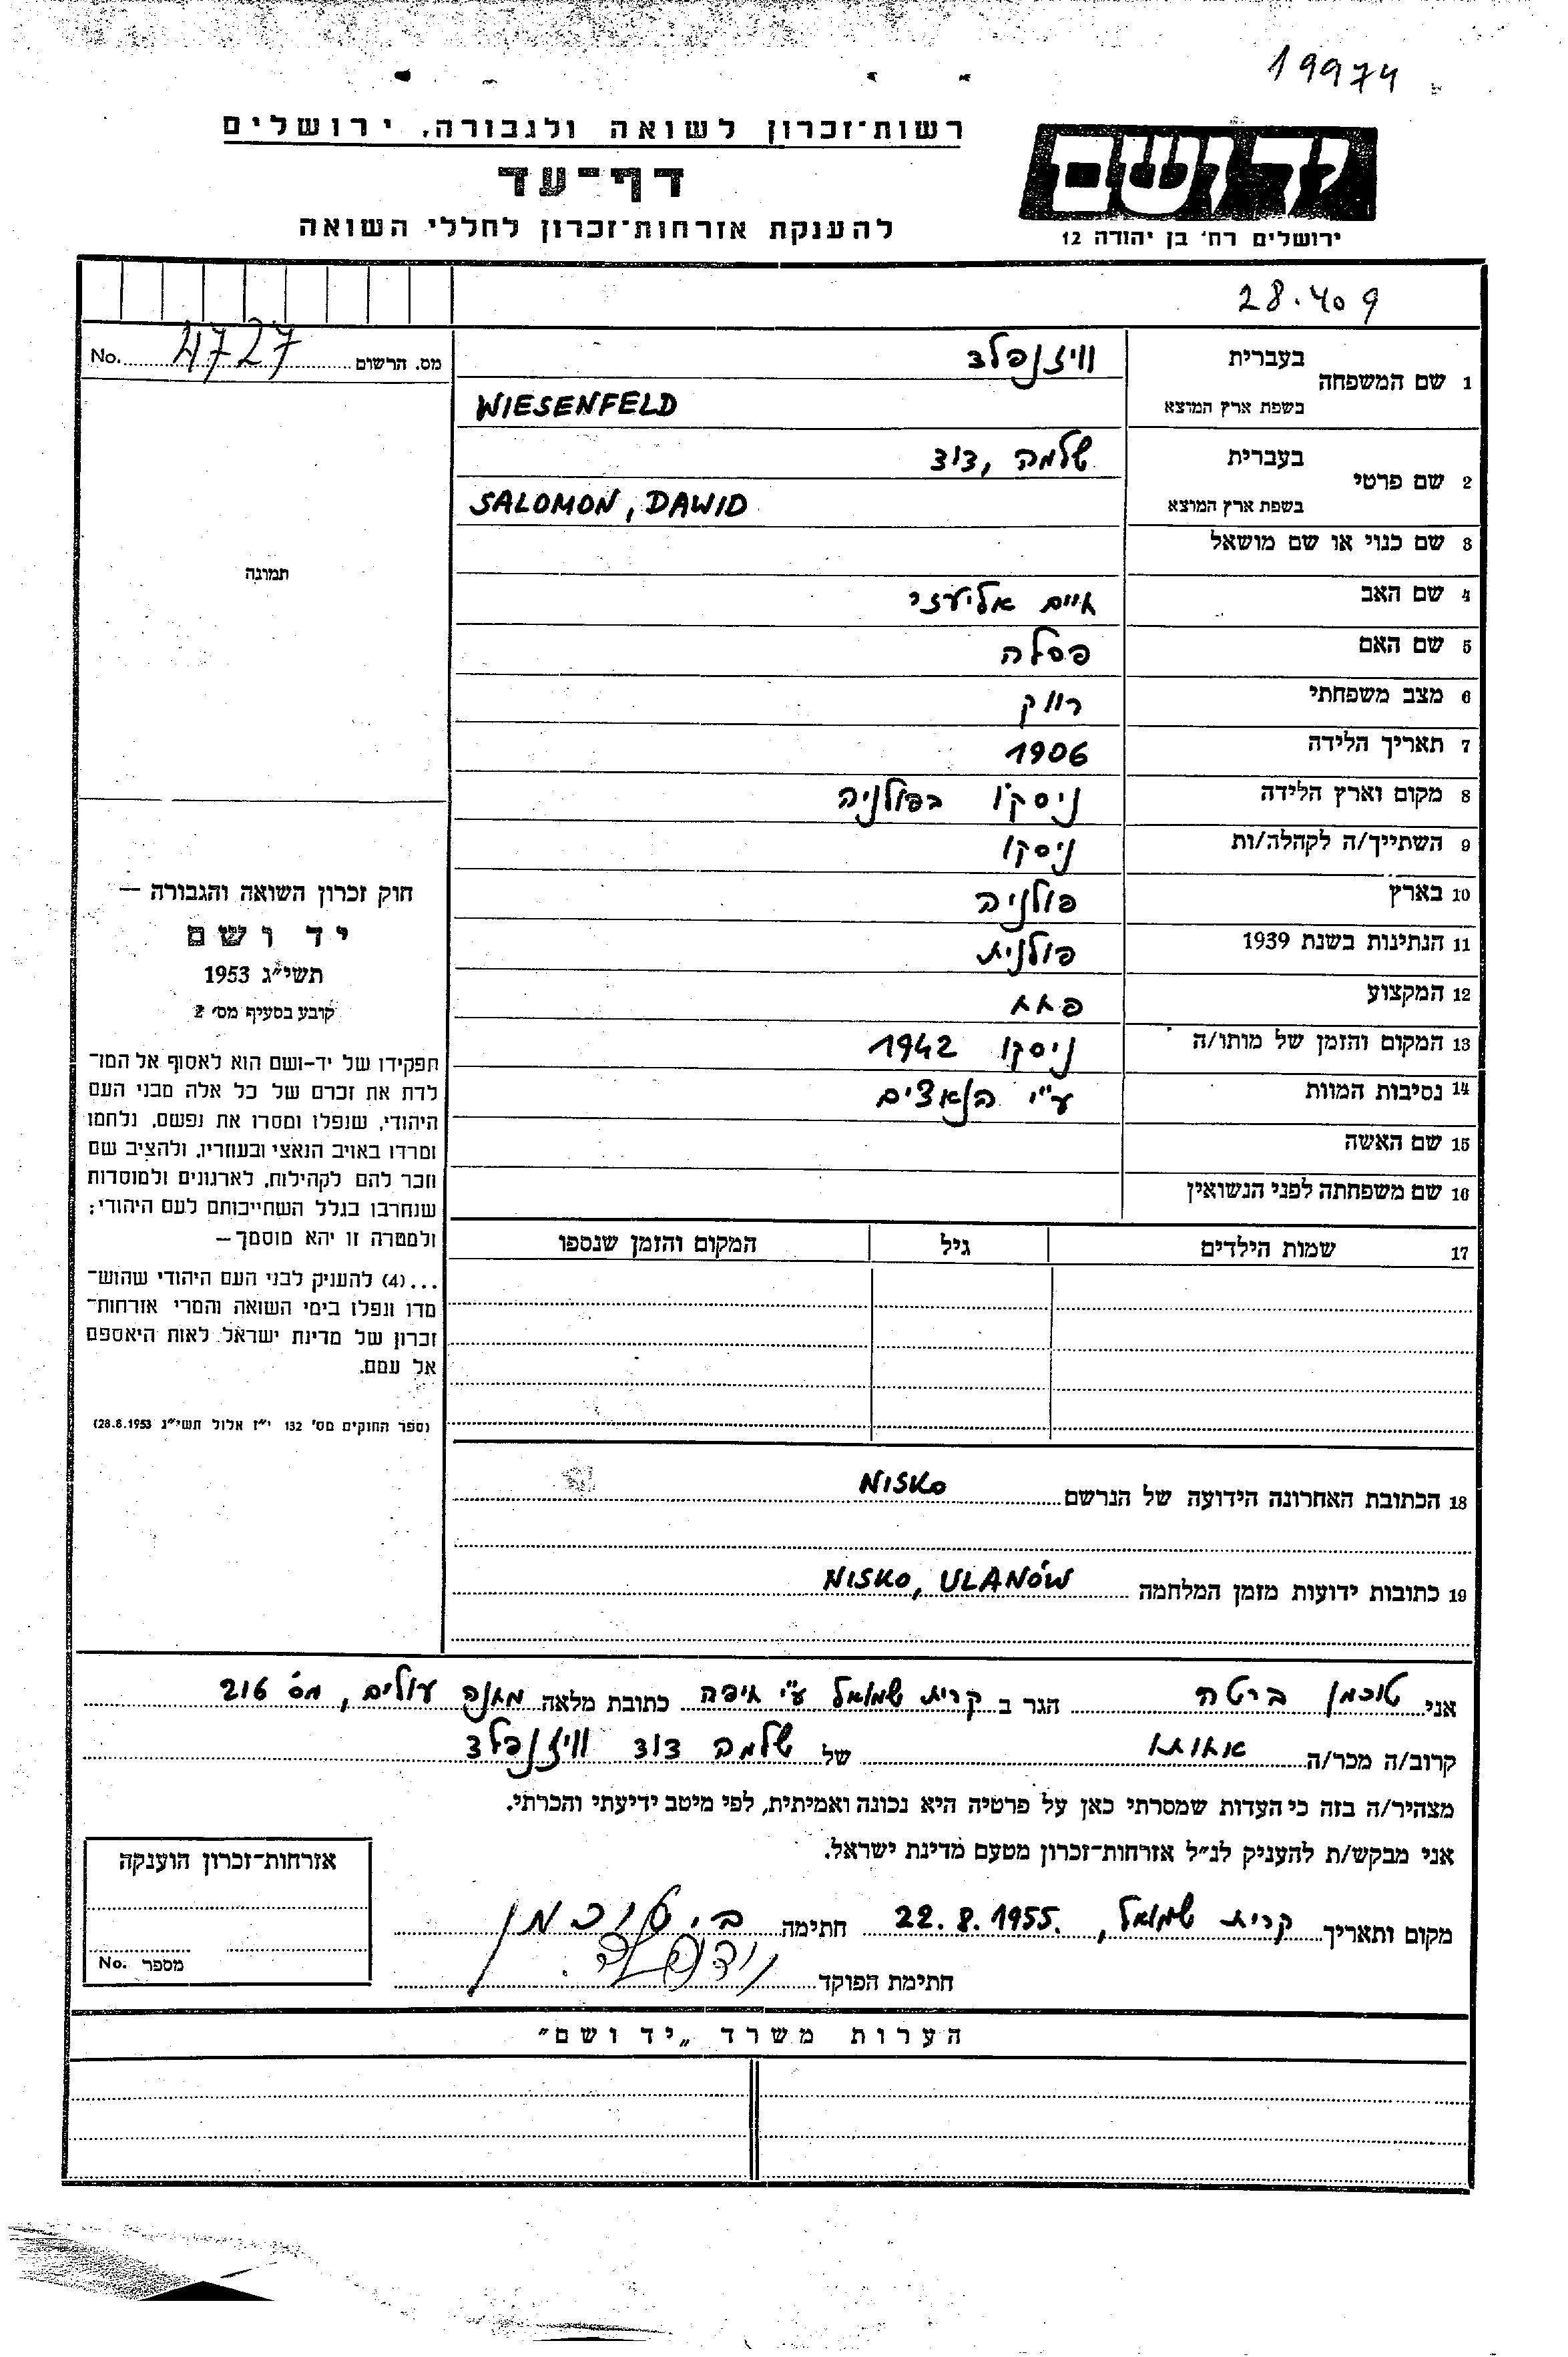 19974
רשות־זכרון לשואה ולגבורה, ירושלים
דף־עד
להענקת אזרחות־זכרון לחללי השואה
יד ושם
ירושלים רח' בן יהודה 12
28.409
מס. הרשום 4727 No.
1 שם המשפחה בעברית וויזנפלד
בשפת ארץ המוצא WIESENFELD
2 שם פרטי בעברית שלמה, דוד
בשפת ארץ המוצא SALOMON, DAWID
3 שם כנוי או שם מושאל
4 שם האב חיים אליעזר
5 שם האם פסלה
6 מצב משפחתי רווק
7 תאריך הלידה 1906
8 מקום וארץ הלידה ניסקו בפולניה
9 השתייך/ה לקהלה/ות ניסקו
10 בארץ פולניה
11 הנתינות בשנת 1939 פולנית
12 המקצוע פחח
13 המקום והזמן של מותו/ה ניסקו 1942
14 נסיבות המוות ע"י הנאצים
15 שם האשה
16 שם משפחתה לפני הנשואין
17 שמות הילדים גיל המקום והזמן שנספו
18 הכתובת האחרונה הידועה של הנרשם NISKO
19 כתובות ידועות מזמן המלחמה NISKO, ULANÓW
תמונה
חוק זכרון השואה והגבורה —
יד ושם
תשי"ג 1953
קובע בסעיף מס' 2
תפקידו של יד-ושם הוא לאסוף אל המו־
לדת את זכרם של כל אלה מבני העם
היהודי, שנפלו ומסרו את נפשם, נלחמו
ומרדו באויב הנאצי ובעוזריו, ולהציב שם
וזכר להם לקהילות, לארגונים ולמוסדות
שנחרבו בגלל השתייכותם לעם היהודי;
ולמטרה זו יהא מוסמך—
...(4) להעניק לבני העם היהודי שהוש־
מדו ונפלו בימי השואה והמרי אזרחות־
זכרון של מדינת ישראל לאות היאספם
אל עמם.
(ספר החוקים מס' 132 י"ז אלול תשי"ג 28.8.1953)
אני טוכמן ברטה הגר ב קרית שמואל ע"י חיפה כתובת מלאה מחנה עולים, מס 216
קרוב/ה מכר/ה אחותו של שלמה דוד וויזנפלד
מצהיר/ה בזה כי העדות שמסרתי כאן על פרטיה היא נכונה ואמיתית, לפי מיטב ידיעתי והכרתי.
אני מבקש/ת להעניק לנ"ל אזרחות־זכרון מטעם מדינת ישראל.
מקום ותאריך קרית שמואל, 22.8.1955. חתימה ב. טוכמן
חתימת הפוקד
אזרחות־זכרון הוענקה
מספר No.
הערות משרד „יד ושם"